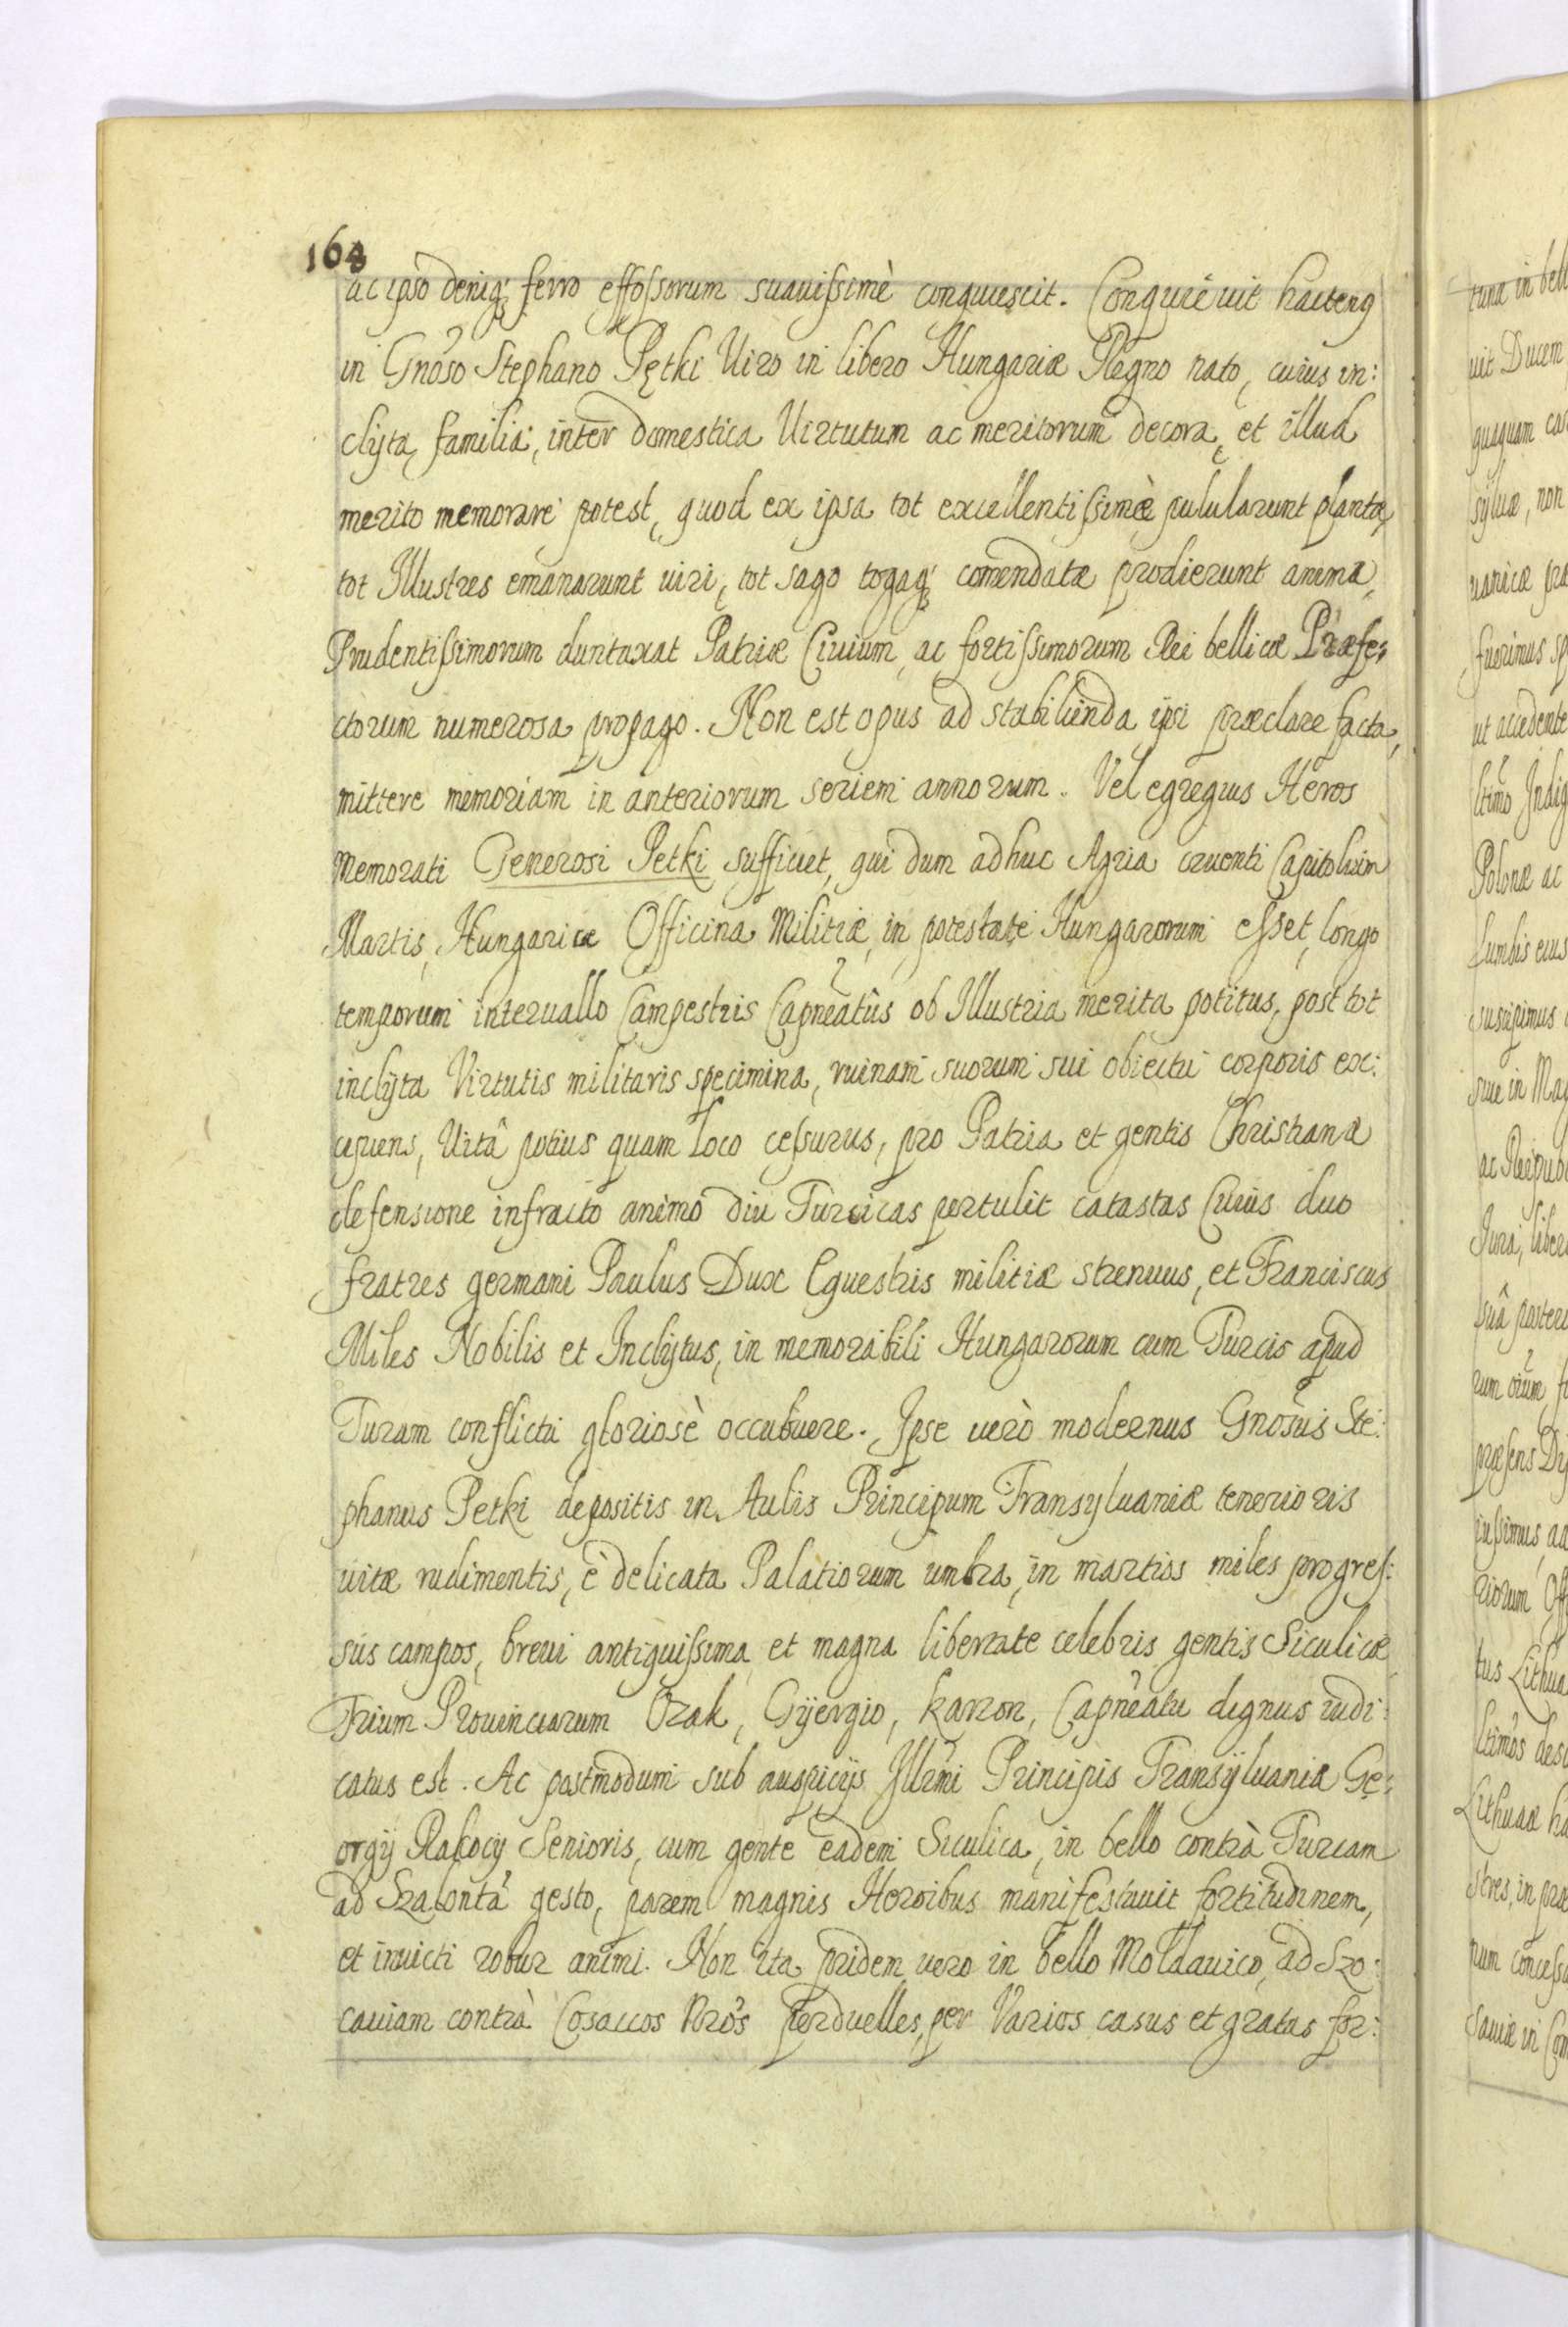 168
ac ipso deniq; ferro effossorum suauissimè conquiescit. Conquieuit hactenq
in Gnoso Stephano Petki Uiro in libero Hungariæ Regno nato, cuius in:
clyta familia, inter domestica Uirtutum ac meritorum decora, et illud
merito memorare potest, quod ex ipsa tot excellentissimè pulularunt plantæ,
tot Illustres emanarunt uiri, tot sago togaq; comendatæ prodierunt animæ,
Prudentissimorum duntaxat Patriæ Ciuium, ac fortissimorum Rei bellicæ Præfe:
ctorum numerosa propago. Non est opus ad stabilienda ipsi præclare facta,
mittere memoriam in anteriorum seriem annorum. Vel egregius Heros
memorati Generosi Petki sufficiet, qui dum adhuc Agria cruenti Capitolium
Martis, Hungaricæ Officina Militiæ, in potestate Hungarorum esset, longo
temporum interuallo Campestris Capneatûs ob Illustria merita potitus, post tot
inclyta Virtutis militaris specimina, ruinam suorum sui obiectu corporis ex:
cipiens, Uitâ potius quam loco cessurus, pro Patria et gentis Christianæ
defensione infracto animo diu Turcicas pertulit catastas Cuius duo
fratres germani Paulus Dux Equestris militiæ strenuus, et Franciscus
Miles Nobilis et Inclytus, in memorabili Hungarorum cum Turcis apud
Turam conflictu gloriosè occubuere. Ipse uerò modernus Gnosus Ste:
phanus Petki depositis in Aulis Principum Transyluaniæ tenerioris
uitæ rudimentis, è delicata Palatiorum umbra, in martios miles progres:
sus campos, breui antiquissima et magna libertate celebris gentis Siculicæ
Trium Prouinciarum Czak, Gyergio, Kazon, Capneatu dignus iudi:
catus est. Ac postmodum sub auspicijs Illrmi Principis Transyluaniæ Ge:
orgij Rakocij Senioris, cum gente eadem Siculica, in bello contrà Turcam
ad Szalontâ gesto, parem magnis Heroibus manifestauit fortitudinem,
et inuicti robur animi. Non ita pridem uero in bello Moldauico, ad Szo:
cauiam contrà Cosaccos Nros Perduelles, per Varios casus et gratas for: